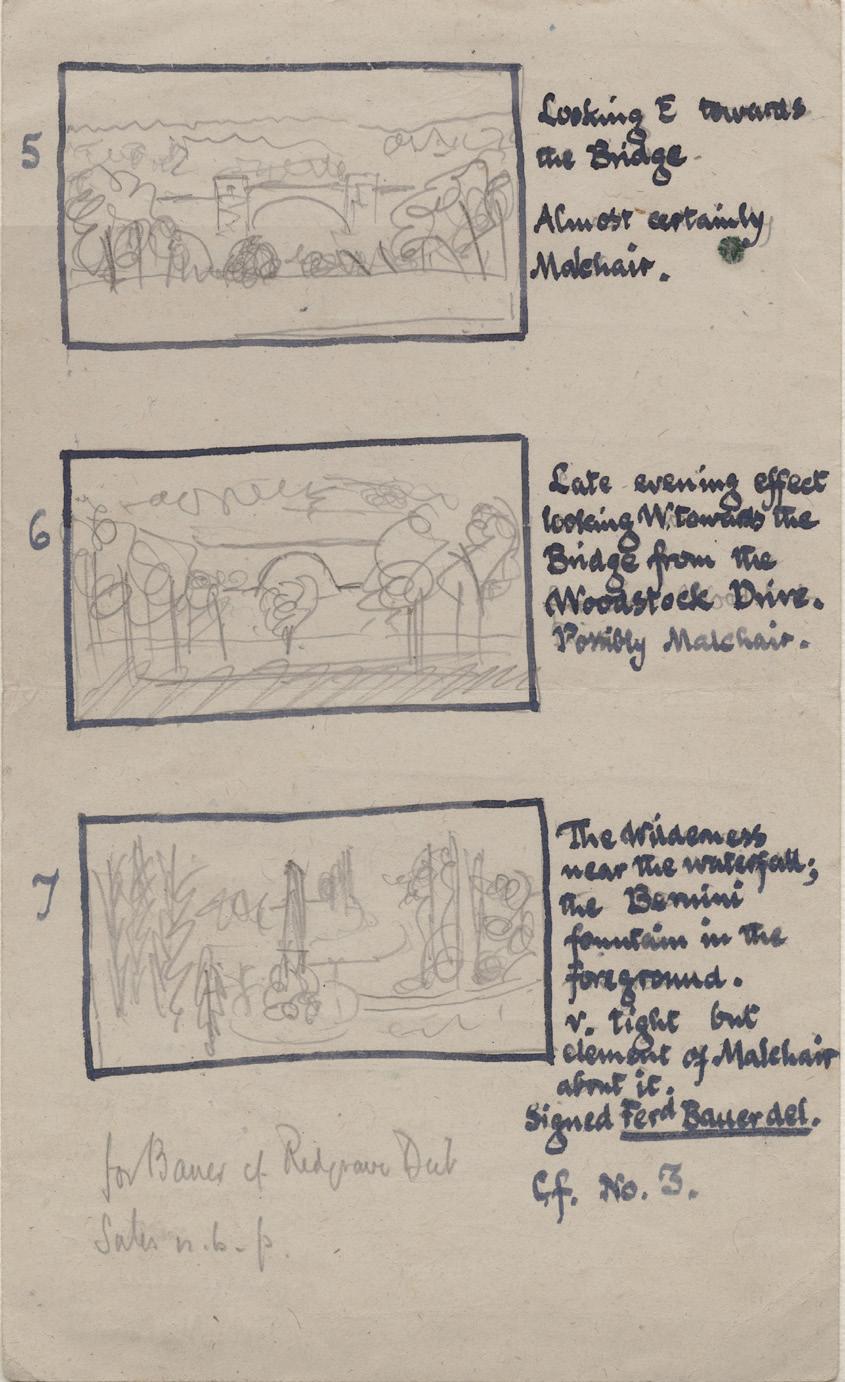 5
Looking E towards
the Bridge.
Almost certainly
Malchair.
6
Late evening effect
looking W towards the
Bridge from the
Woodstock Drive.
Possibly Malchair.
7
The Wilderness
near the waterfall;
the Bernini
fountain in the
foreground.
v. tight but
element of Malchair
about it.
Signed Ferd Bauer del.
Cf. No. 3.
for Bauer cf Redgrave Dict
n.b.p.